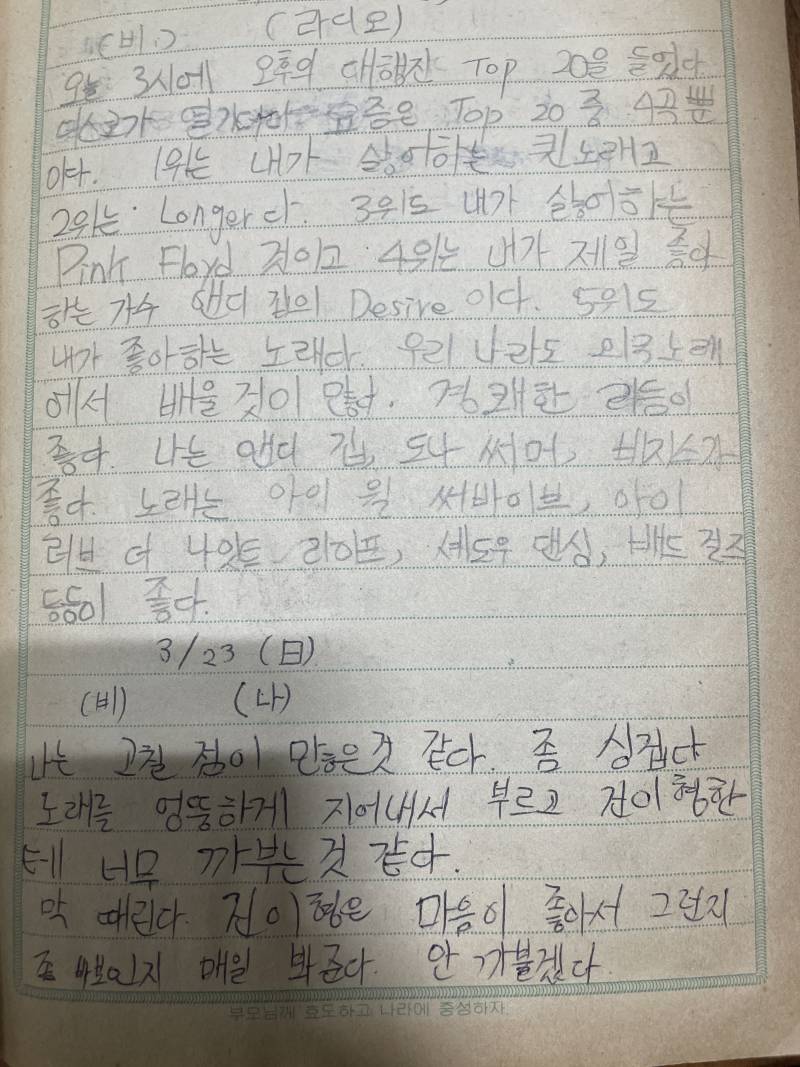 (비.) (라디오)
오늘 3시에 오후의 대행진 Top 20을 들었다.
디스코가 열기더니 요즘은 Top 20 중 4곡뿐
이다. 1위는 내가 싫어하는 퀸노래고
2위는 Longer다. 3위도 내가 싫어하는
Pink Floyd 것이고 4위는 내가 제일 좋아
하는 가수 앤디 깁의 Desire 이다. 5위도
내가 좋아하는 노래다. 우리 나라도 외국노래
에서 배울 것이 많다. 경쾌한 리듬이
좋다. 나는 앤디 깁, 도나 써머, 비지스가
좋다. 노래는 아이 윌 써바이브, 아이
러브 더 나잇트 라이프, 섀도우 댄싱, 배드 걸즈
등등이 좋다.
3/23 (日)
(비) (나)
나는 고칠 점이 많은것 같다. 좀 싱겁다
노래를 엉뚱하게 지어내서 부르고 진이형한
테 너무 까부는 것 같다.
막 때린다. 진이형은 마음이 좋아서 그런지
좀 바보인지 매일 봐준다. 안 까불겠다
부모님께 효도하고 나라에 충성하자